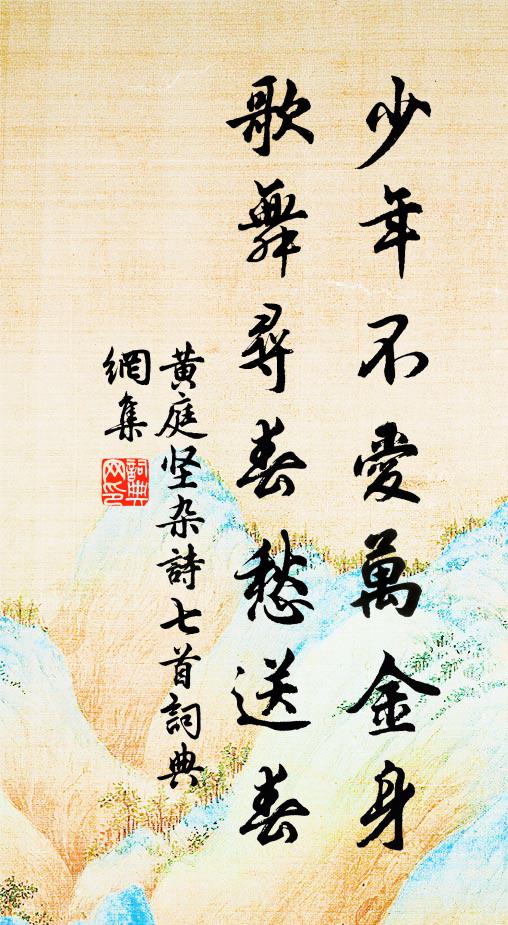 少年不愛萬金身
歌舞尋春愁送春
黄庭坚杂詩七首詞典
網集
詞典网印